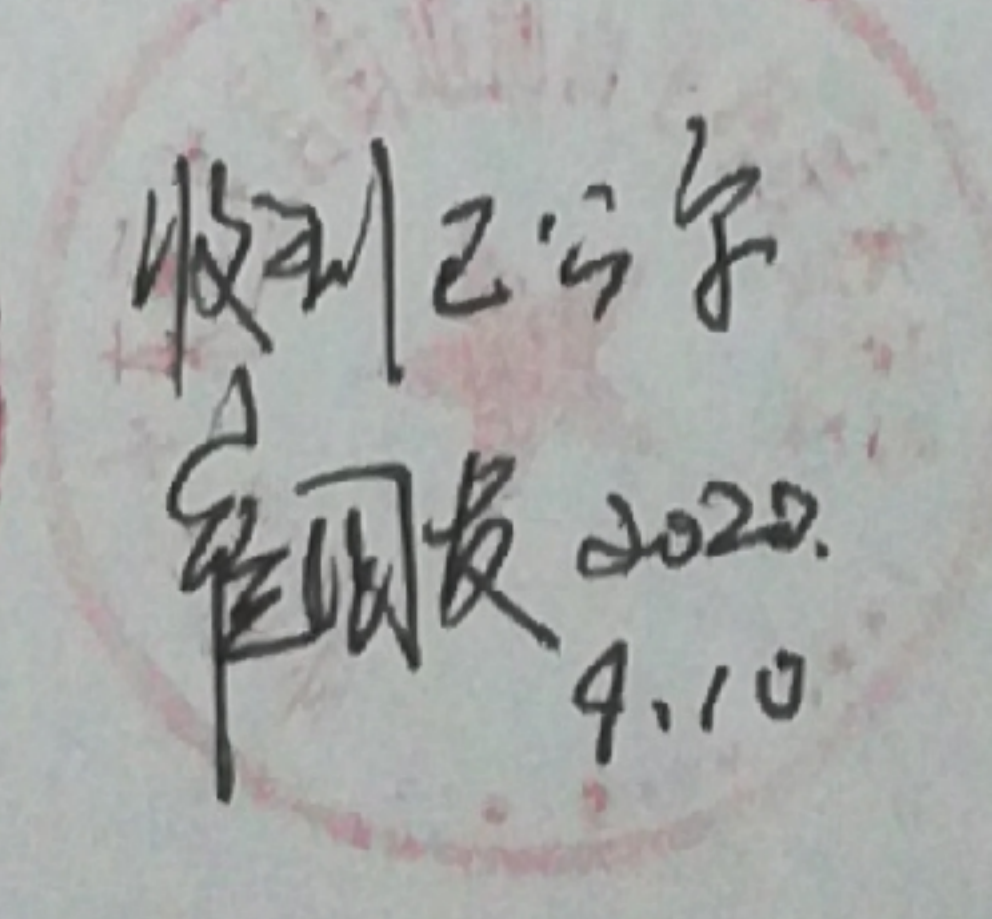 收到已签字
国发 2020.
9.10